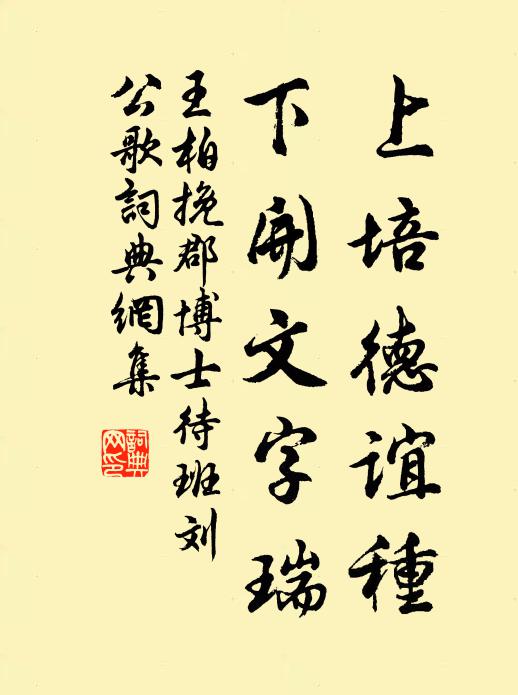 上培德誼種
下開文字瑞
王柏挽郡博士待班刘
公歌詞典網集
詞典
网印